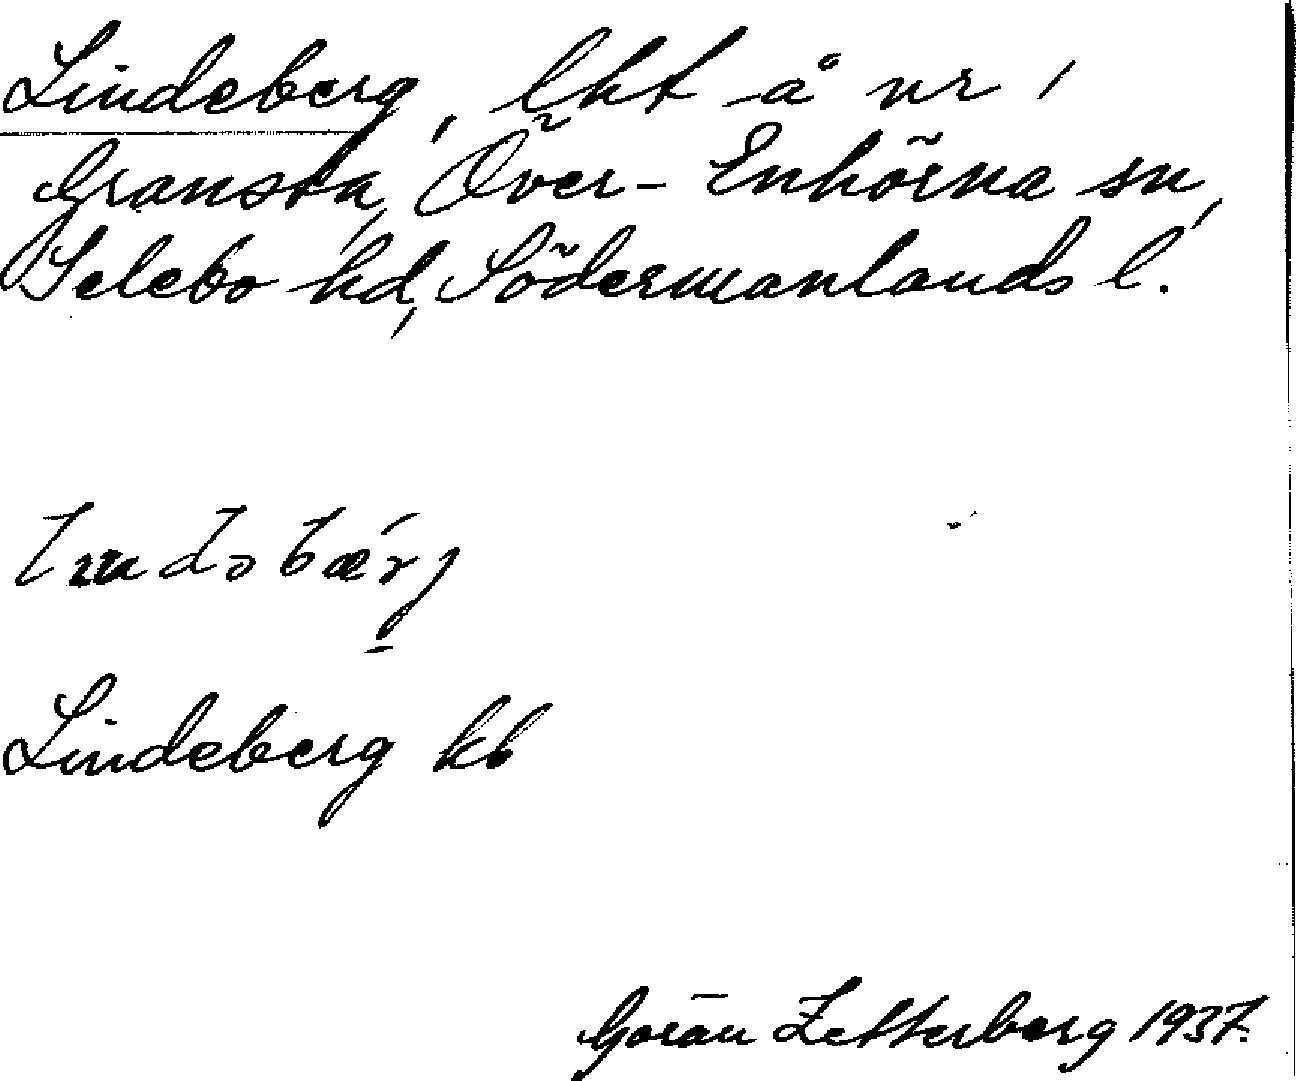 Lindeberg, lht å nr 1
Gransta, Över-Enhörna sn,
Selebo hd, Södermanlands l.
Lindeberg kb
Göran Zetterberg 1937.